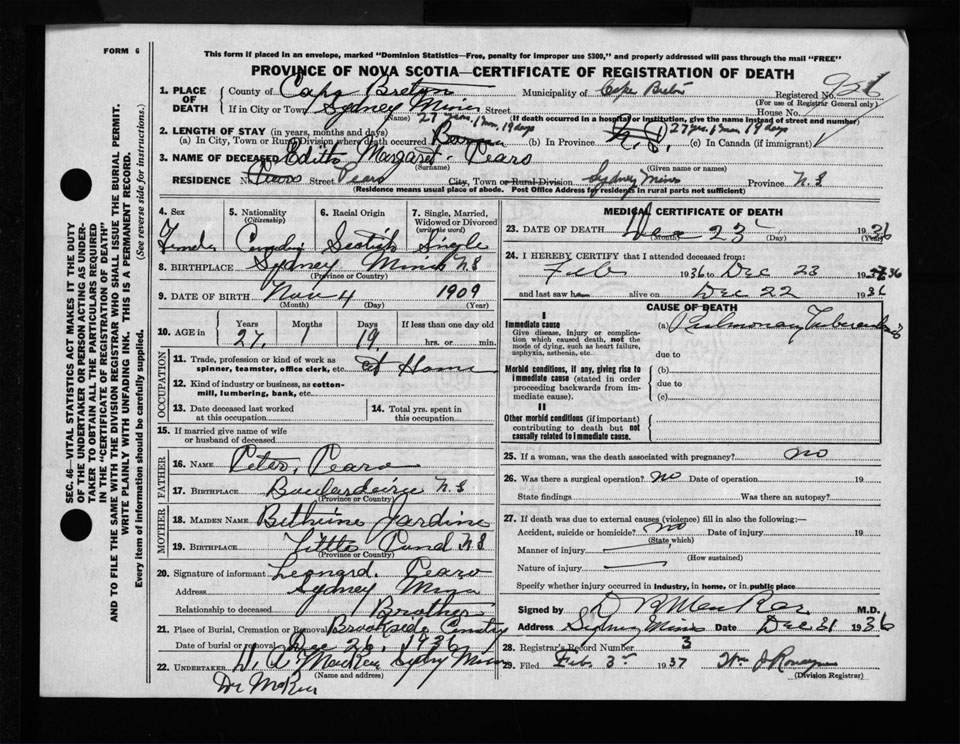 FORM 6
This form if placed in an envelope, marked "Dominion Statistics—Free, penalty for improper use $300," and properly addressed will pass through the mail "FREE"
PROVINCE OF NOVA SCOTIA—CERTIFICATE OF REGISTRATION OF DEATH
1. PLACE OF DEATH
County of Cape Breton Municipality of Cape Breton Registered No.
(For use of Registrar General only)
If in City or Town Sydney Mines Street House No.
(Name) (If death occurred in a hospital or institution, give the name instead of street and number)
2. LENGTH OF STAY (in years, months and days) 27 years, 1 mon, 19 days 27 yrs. 1 mon 19 days
(a) In City, Town or Rural Division where death occurred (b) In Province (c) In Canada (if immigrant)
3. NAME OF DECEASED Edith Margaret Pearo
(Surname) (Given name or names)
RESIDENCE No. Pearo Street Pearo City, Town or Rural Division Sydney Mines Province N.S
(Residence means usual place of abode. Post Office Address for residents in rural parts not sufficient)
4. Sex Female
5. Nationality (Citizenship) Canadian
6. Racial Origin Scotish
7. Single, Married, Widowed or Divorced (write the word) Single
8. BIRTHPLACE Sydney Mines N.S
(Province or Country)
9. DATE OF BIRTH Nov 4 1909
(Month) (Day) (Year)
10. AGE in Years 27 Months 1 Days 19 If less than one day hrs. or min.
OCCUPATION
11. Trade, profession or kind of work as spinner, teamster, office clerk, etc. at Home
12. Kind of industry or business, as cotton-mill, lumbering, bank, etc.
13. Date deceased last worked at this occupation
14. Total yrs. spent in this occupation
15. If married give name of wife or husband of deceased
FATHER
16. NAME Peter Pearo
17. BIRTHPLACE N.S
(Province or Country)
MOTHER
18. MAIDEN NAME Jardine
19. BIRTHPLACE Little Pond N.S
(Province or Country)
20. Signature of informant Leonard Pearo
Address Sydney Mines
Relationship to deceased Brother
21. Place of Burial, Cremation or Removal Brookside Cemetry
Date of burial or removal Dec 26, 1936
22. UNDERTAKER Sydney Mines
(Name and address)
MEDICAL CERTIFICATE OF DEATH
23. DATE OF DEATH Dec 23 1936
(Month) (Day) (Year)
24. I HEREBY CERTIFY that I attended deceased from
Feb 1936 to Dec 23 1936
and last saw h alive on Dec 22 1936
CAUSE OF DEATH
I
Immediate cause
Give disease, injury or complication which caused death, not the mode of dying, such as heart failure, asphyxia, asthenia, etc.
(a) Pulmonary Tuberculosis
due to
Morbid conditions, if any, giving rise to immediate cause (stated in order proceeding backwards from immediate cause).
(b)
due to
(c)
II
Other morbid conditions (if important) contributing to death but not causally related to immediate cause.
25. If a woman, was the death associated with pregnancy? no
26. Was there a surgical operation? no Date of operation 19
State findings Was there an autopsy?
27. If death was due to external causes (violence) fill in also the following:—
Accident, suicide or homicide? no Date of injury 19
(State which)
Manner of injury
(How sustained)
Nature of injury
Specify whether injury occurred in industry, in home, or in public place
Signed by M.D.
Address Sydney Mines Date Dec 31 1936
28. Registrar's Record Number 3
29. Filed Feb 3rd 1937
(Division Registrar)
SEC. 46—VITAL STATISTICS ACT MAKES IT THE DUTY
OF THE UNDERTAKER OR PERSON ACTING AS UNDER-
TAKER TO OBTAIN ALL THE PARTICULARS REQUIRED
IN THE "CERTIFICATE OF REGISTRATION OF DEATH"
AND TO FILE THE SAME WITH THE DIVISION REGISTRAR WHO SHALL ISSUE THE BURIAL PERMIT.
WRITE PLAINLY WITH UNFADING INK. THIS IS A PERMANENT RECORD.
Every item of information should be carefully supplied. (See reverse side for instructions.)